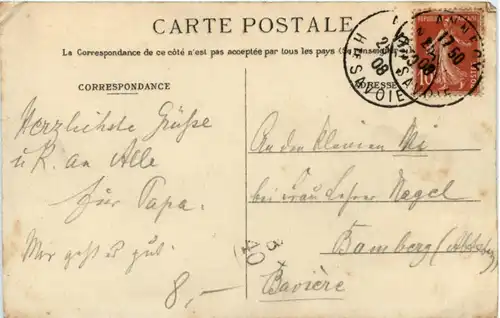 CARTE POSTALE
La Correspondance de ce côté n'est pas acceptée par tous les pays (Se renseigner
CORRESPONDANCE
ADRESSE
Herzlichste Grüße
u. K. an Alle
für Papa.
Mir geht es gut.
8,—
An den kleinen
bei Frau Lehrer Nagel
Bamberg
Bavière
3
40
REPUBLIQUE FRANÇAISE
10
POSTES
ANNECY
17 50
08
HTE SAVOIE